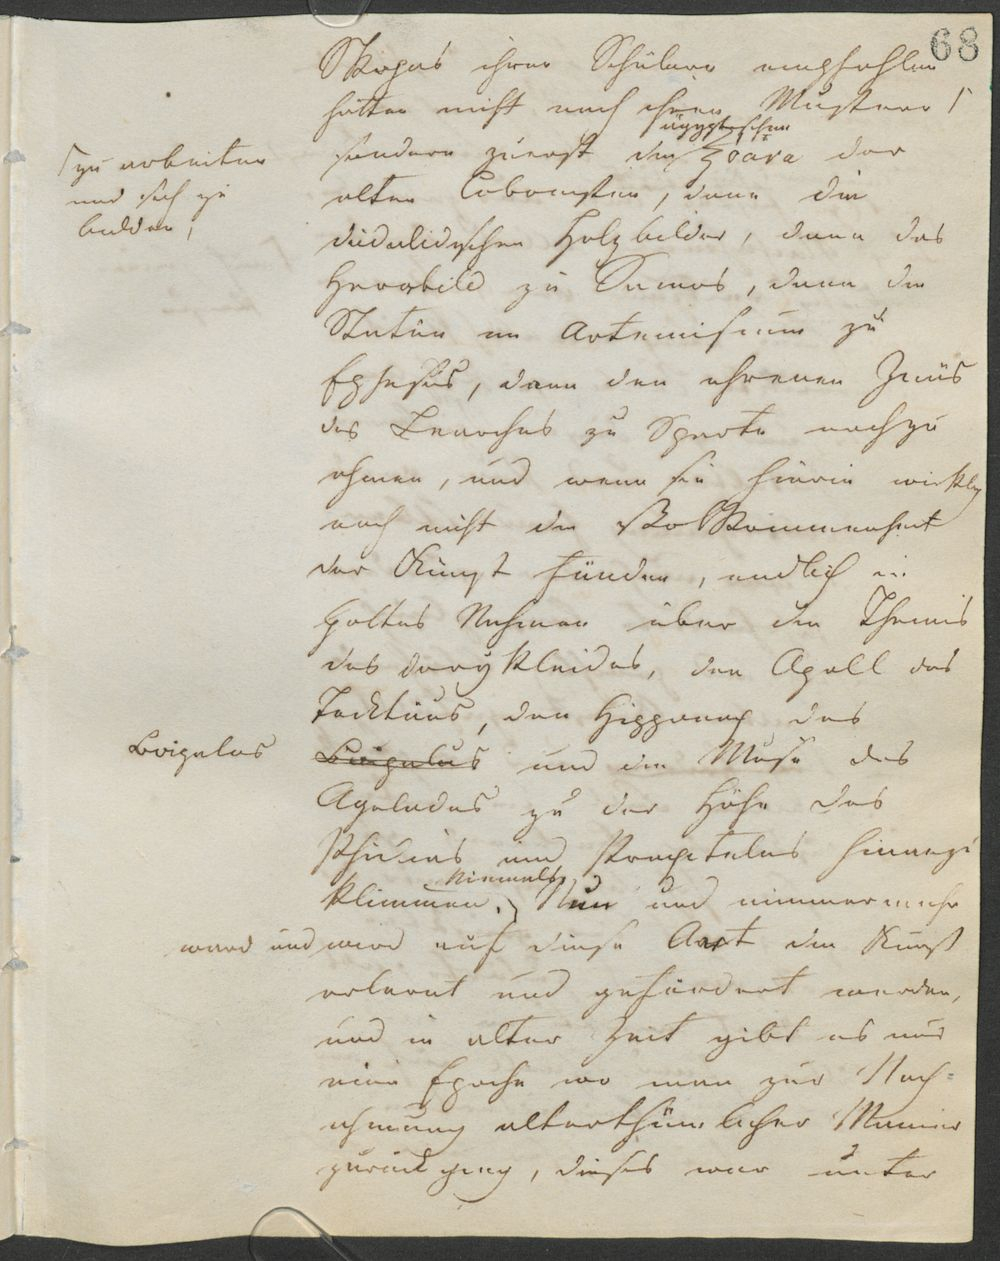 68
Skopas ihren Schülern empfohlen
hätten nicht nach ihren Mustern ⌈
ägyptischen
⌈zu arbeiten
und sich zu
bilden,
sondern zuerst die Zoara der
alten, dann die
dädalidischen Holzbilder, dann das
Herabild zu Samos, dann die
Statüen im Artemisium zu
Ephesüs, dann den ehrenen Zeüs
des Learchos zu Sparta nachzu
ahmen, und wenn sie hierin wirklich
noch nicht die Vollkommenheit
der Kunst fünden, endlich in
Gottes Nahmen über die Themis
des Dorykleidas, den Apoll des
Tecktäus, den des
Boigalas
und die Muse des
Ageladas zu der Höhe des
Phidias und Praxiteles hinanzu
Niemals
klimmen. und nimmermehr
ward und wird auf diese Art die Kunst
erlernt und gefördert werden,
und in alter Zeit gibt es nur
eine Epoche wo man zur Nach=
ahmung alterthümlicher Manier
zurück ging, dieses war unter